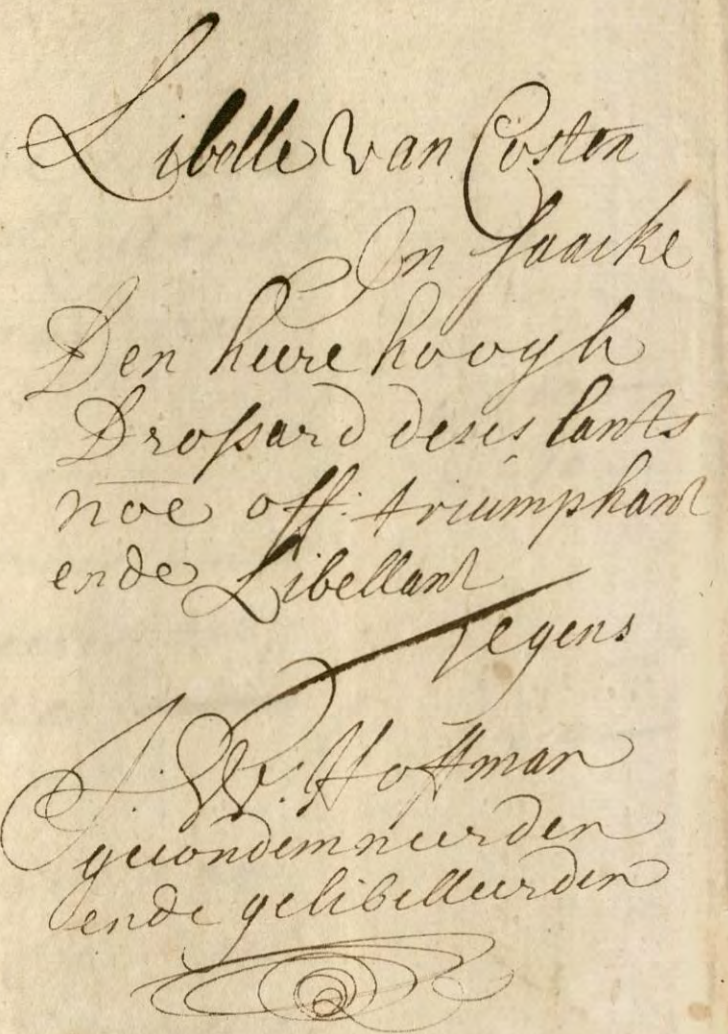 Libelle van Costen
In saacke
Den heere hoogh
Drossard deses lants
noe off: triumphant
ende Libellant
Tegens
J: W: Hoffman
gecondemneerden
ende gelibelleerden